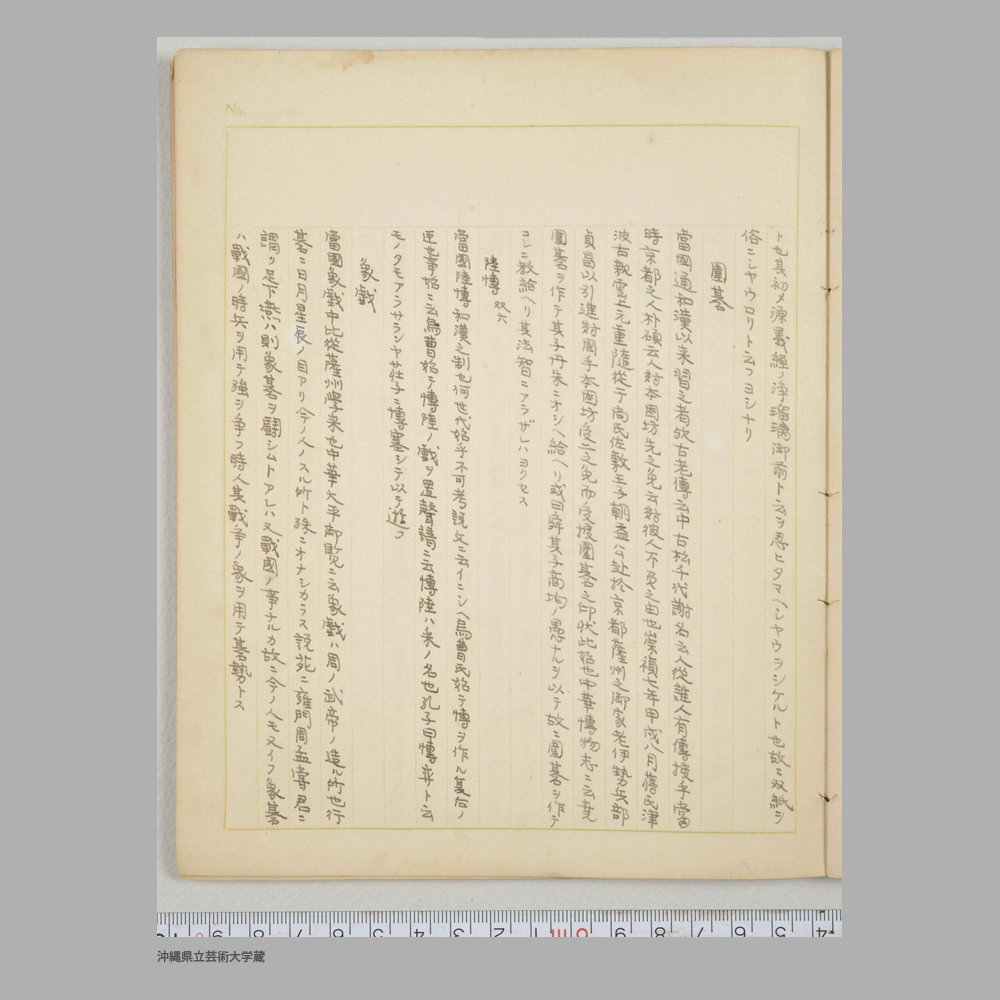 ト也其初メ源義經ノ浄瑠璃御前ト云ヲ忍ヒタマヘシヤウヲシケルト也故ニ双紙ヲ
俗ニシヤウロリト云フヨシナリ
圍碁
當國通和漢以来習之者欤古老傳云中古松千代謝名云人從誰人有傳授乎當
時京都之人朴碩云人対本因坊先之免云対彼人不負之由也崇禎七年甲戌八月蔭氏津
波古親雲上元重隨從于尚氏佐敷王子朝益公赴於京都薩州之御家老伊勢兵部
貞昌以引進対國手本因坊受二之免而受授圍碁之印状此始也中華博物志ニ云堯
圍碁ヲ作テ其子丹朱ニオシヘ給ヘリ或曰舜其子商均ノ愚ナルヲ以テ故ニ圍碁ヲ作テ
コレニ教給ヘリ其法智ニアラザレハヨクセス
陸博 双六
當國陸博和漢之制也何世代始乎不可考説文ニ云イニシヘ烏曹氏始テ博ヲ作ル夏后ノ
臣也事始ニ云烏曹始テ博陸ノ戯ヲ置聲譜ニ云博陸ハ采ノ名也孔子曰博弈ト云
モノタモアラサランヤ荘子ニ博塞シテ以テ遊フ
象戯
當國象戯中比從薩州學来也中華大平御覧ニ云象戯ハ周ノ武帝ノ造ル所也行
碁ニ日月星辰ノ目アリ今ノ人ノスル所ト殊ニオナシカラス説苑ニ雍門周孟嘗君ニ
謂リ足下燕ハ則象碁ヲ鬪シムトアレハ又戰國ノ事ナルカ故ニ今ノ人モ又イフ象碁
ハ戰國ノ時兵ヲ用テ強ヲ争フ時人其戰争ノ象ヲ用テ碁勢トス
No.
沖縄県立芸術大学蔵